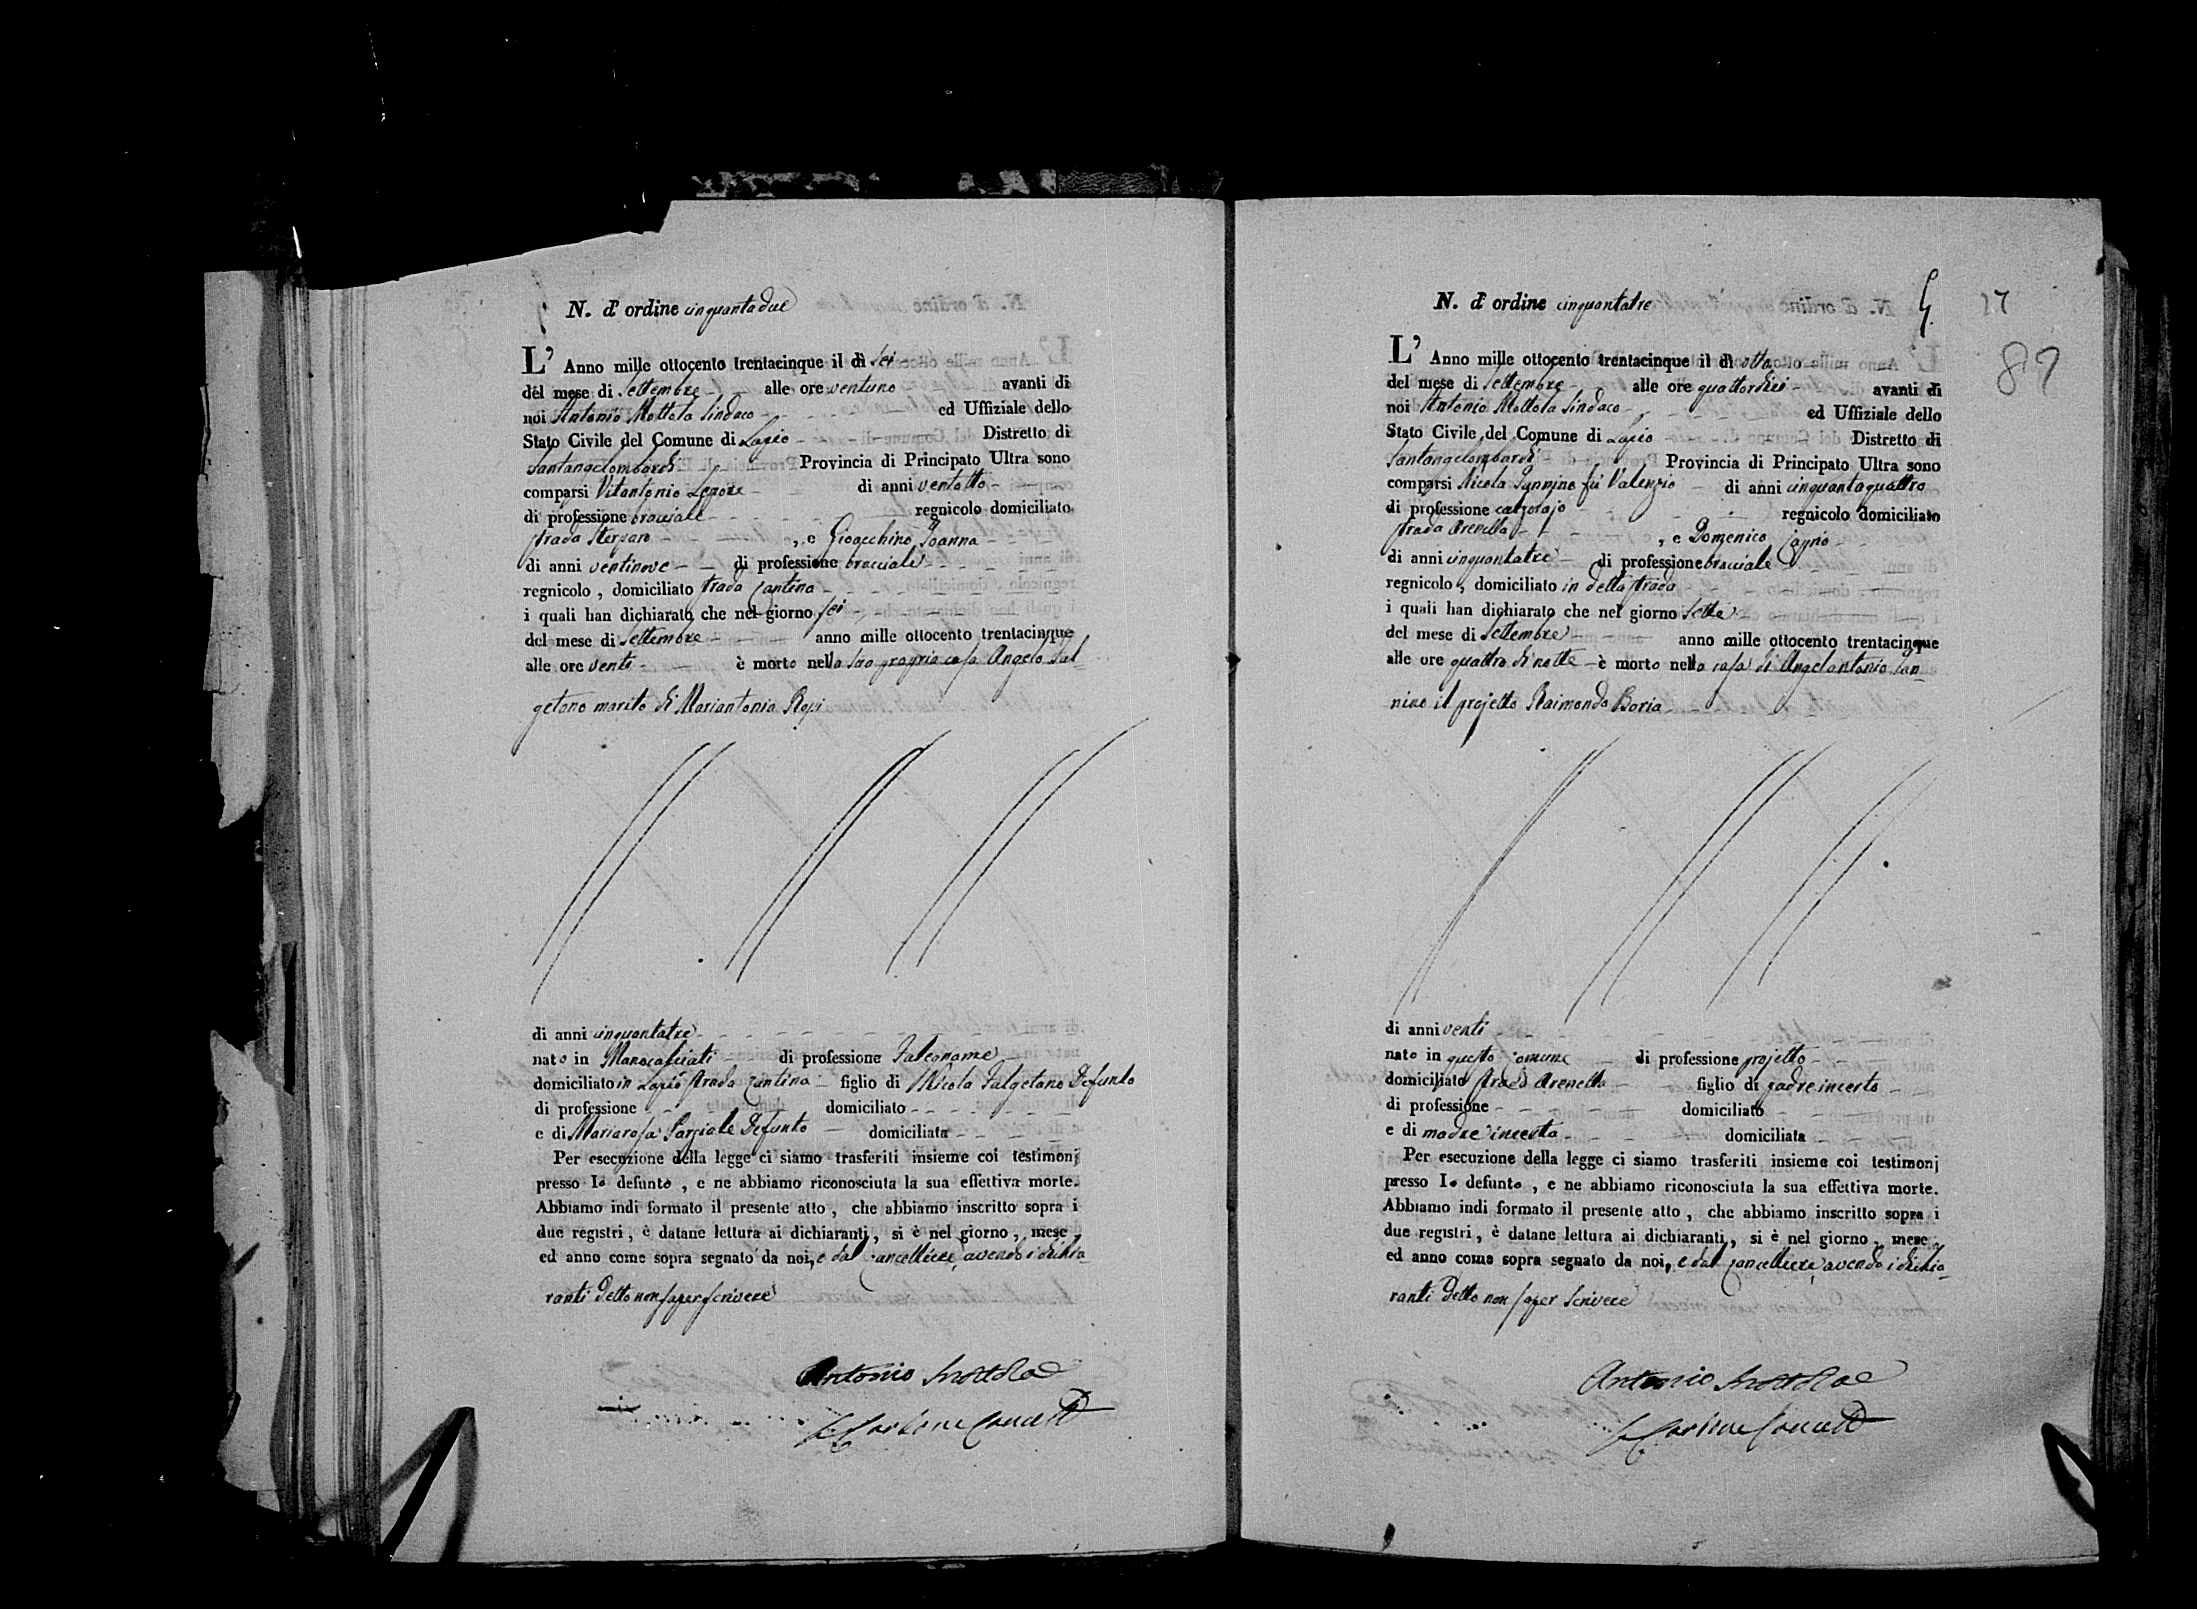 N. d' ordine cinquantadue
L' Anno mille ottocento trentacinque il dì sei
del mese di Settembre alle ore ventuno avanti di
noi Antonio Mottola Sindaco ed Uffiziale dello
Stato Civile del Comune di Lapio Distretto di
Santangelombardi Provincia di Principato Ultra sono
comparsi Vitantonio Lepore di anni ventotto
di professione bracciale regnicolo domiciliato
strada Sterparo , e Gioacchino Joanna
di anni ventinove di professione bracciale
regnicolo , domiciliato strada Cantina
i quali han dichiarato che nel giorno sei
del mese di Settembre anno mille ottocento trentacinque
alle ore venti è morto nella sua propria casa Angelo Fal
getano marito di Mariantonia
di anni cinquantatre
nato in Manocalzati di professione Falegname
domiciliato in Lapio strada Cantina figlio di Nicola Falgetano Defunto
di professione domiciliato
e di Mariarosa Defunto domiciliata
Per esecuzione della legge ci siamo trasferiti insieme coi testimonj
presso lo defunto , e ne abbiamo riconosciuta la sua effettiva morte.
Abbiamo indi formato il presente atto , che abbiamo inscritto sopra i
due registri, e datane lettura ai dichiaranti, si è nel giorno , mese ,
ed anno come sopra segnato da noi, e dal Cancelliere, avendo i dichia
ranti detto non saper scrivere
Antonio Mottola
Carbone Cancell
N. d' ordine cinquantatre
27
89
L' Anno mille ottocento trentacinque il dì otto
del mese di Settembre alle ore quattordici avanti di
noi Antonio Mottola Sindaco ed Uffiziale dello
Stato Civile del Comune di Lapio Distretto di
Santangelombardi Provincia di Principato Ultra sono
comparsi Nicola fu Valenzio di anni cinquantaquattro
di professione calzolajo regnicolo domiciliato
strada Arenella , e Domenico
di anni cinquantatre di professione bracciale
regnicolo , domiciliato in detta strada
i quali han dichiarato che nel giorno sette
del mese di Settembre anno mille ottocento trentacinque
alle ore quattro di notte è morto nella casa di Angelantonio
nino il projetto Raimondo Boria
di anni venti
nato in questo Comune di professione projetto
domiciliato strada Arenella figlio di padre incerto
di professione domiciliato
e di madre incerta domiciliata
Per esecuzione della legge ci siamo trasferiti insieme coi testimonj
presso lo defunto , e ne abbiamo riconosciuta la sua effettiva morte.
Abbiamo indi formato il presente atto , che abbiamo inscritto sopra i
due registri, e datane lettura ai dichiaranti, si è nel giorno , mese ,
ed anno come sopra segnato da noi, e dal Cancelliere, avendo i dichia
ranti detto non saper scrivere
Antonio Mottola
Carbone Cancell